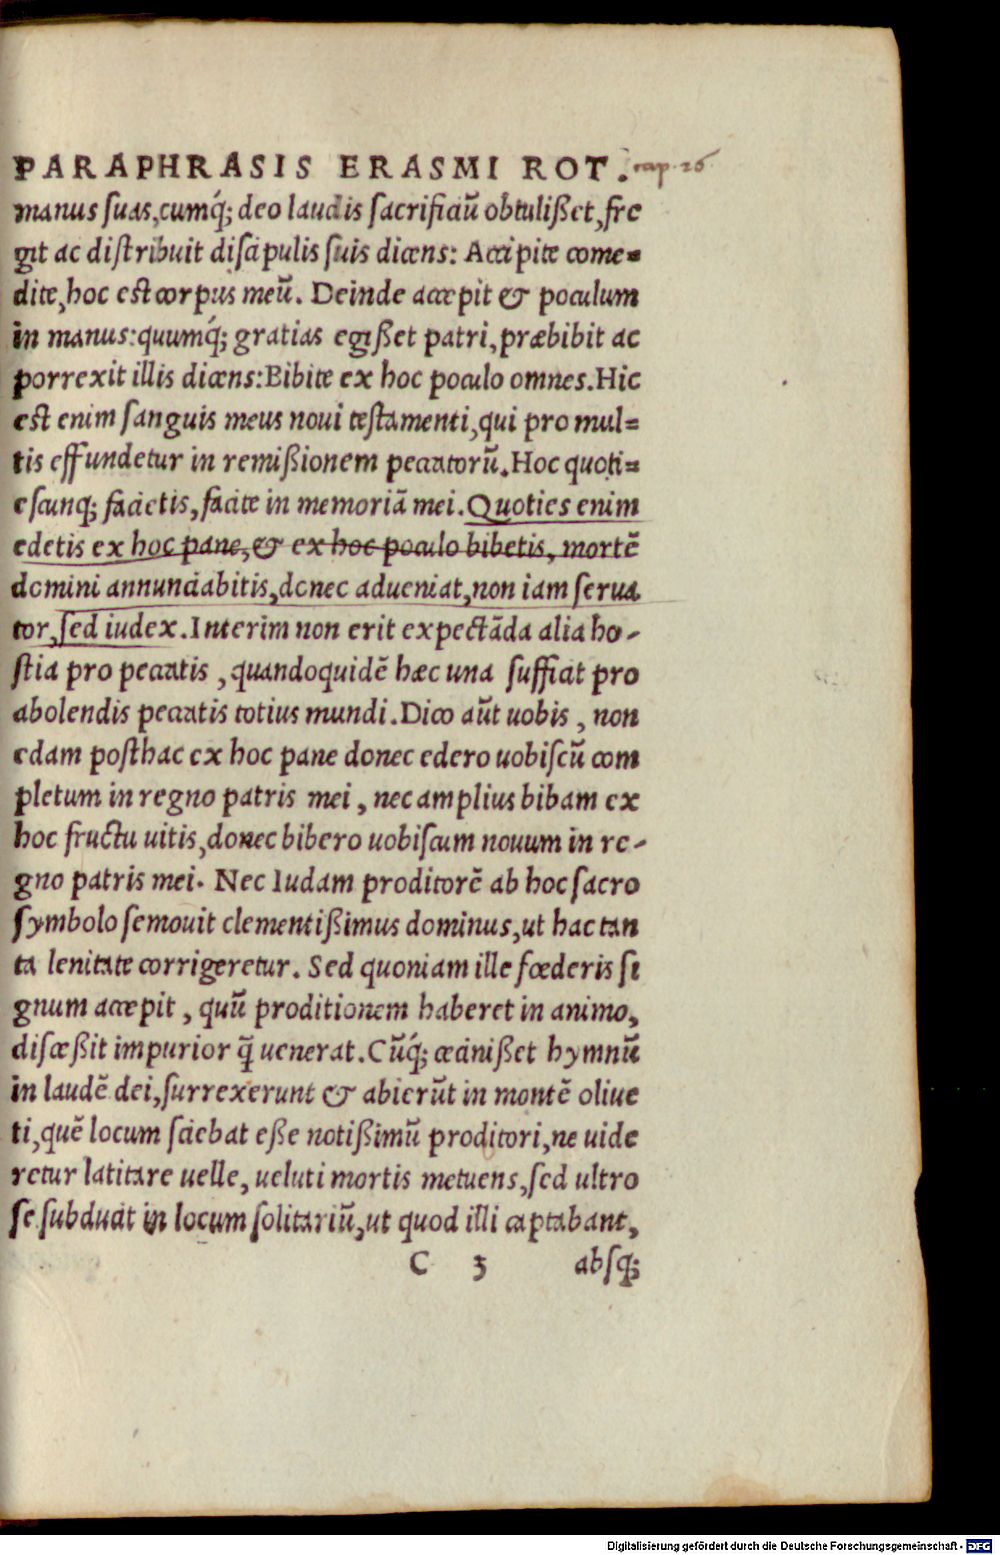 PARAPHRASIS ERASMI ROT. cap. 26
manus suas, cumq́; deo laudis sacrificiũ obtulißet, fre
git ac distribuit discipulis suis dicens: Accipite come=
dite, hoc est corpus meũ. Deinde accepit & poculum
in manus: quumq́; gratias egißet patri, præbibit ac
porrexit illis dicens: Bibite ex hoc poculo omnes. Hic
est enim sanguis meus noui testamenti, qui pro mul=
tis effundetur in remißionem peccatorũ. Hoc quoti=
escunq; facietis, facite in memoriã mei. Quoties enim
edetis ex hoc pane, & ex hoc poculo bibetis, mortẽ
domini annunciabitis, donec adueniat, non iam serua
tor, sed iudex. Interim non erit expectãda alia ho-
stia pro peccatis, quandoquidẽ hæc una sufficit pro
abolendis peccatis totius mundi. Dico aũt uobis, non
edam posthac ex hoc pane donec edero uobiscũ com
pletum in regno patris mei, nec amplius bibam ex
hoc fructu uitis, donec bibero uobiscum nouum in re-
gno patris mei. Nec Iudam proditorẽ ab hoc sacro
symbolo semouit clementißimus dominus, ut hac tan
ta lenitate corrigeretur. Sed quoniam ille fœderis si
gnum accepit, quũ proditionem haberet in animo,
disceßit impurior q̃ uenerat. Cũq́; cecinißet hymnũ
in laudẽ dei, surrexerunt & abierũt in montẽ oliue
ti, quẽ locum sciebat eße notißimũ proditori, ne uide
retur latitare uelle, ueluti mortis metuens, sed ultro
se subducit in locum solitariũ, ut quod illi captabant,
C 3 absq;
Digitalisierung gefördert durch die Deutsche Forschungsgemeinschaft - DFG